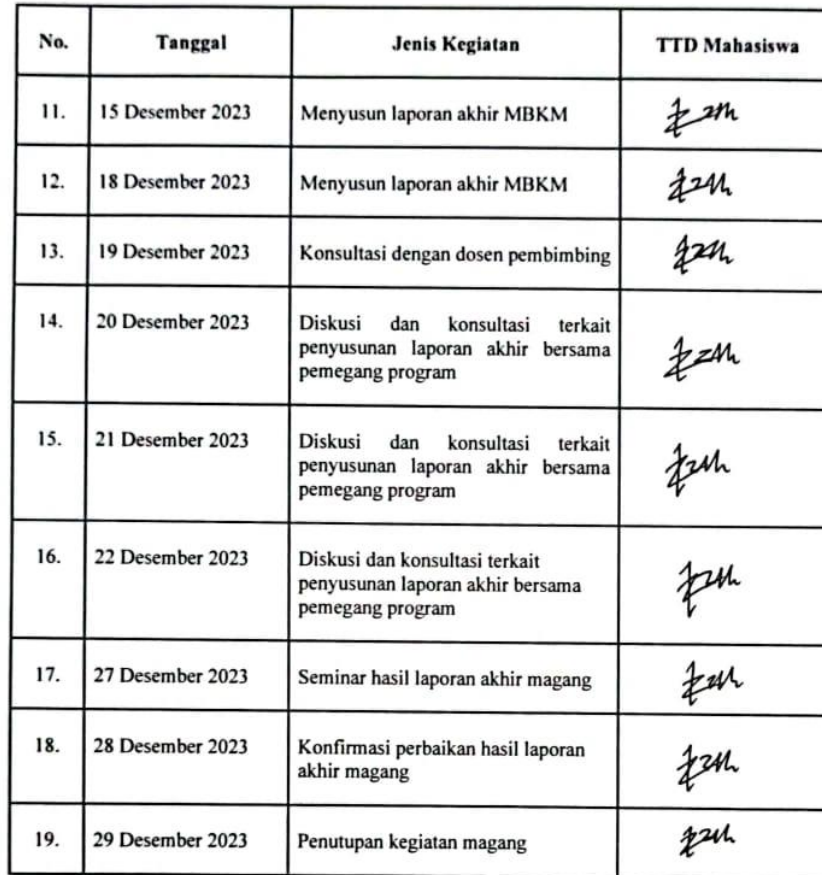 No. Tanggal Jenis Kegiatan TTD Mahasiswa
11. 15 Desember 2023 Menyusun laporan akhir MBKM
12. 18 Desember 2023 Menyusun laporan akhir MBKM
13. 19 Desember 2023 Konsultasi dengan dosen pembimbing
14. 20 Desember 2023 Diskusi dan konsultasi terkait
penyusunan laporan akhir bersama
pemegang program
15. 21 Desember 2023 Diskusi dan konsultasi terkait
penyusunan laporan akhir bersama
pemegang program
16. 22 Desember 2023 Diskusi dan konsultasi terkait
penyusunan laporan akhir bersama
pemegang program
17. 27 Desember 2023 Seminar hasil laporan akhir magang
18. 28 Desember 2023 Konfirmasi perbaikan hasil laporan
akhir magang
19. 29 Desember 2023 Penutupan kegiatan magang